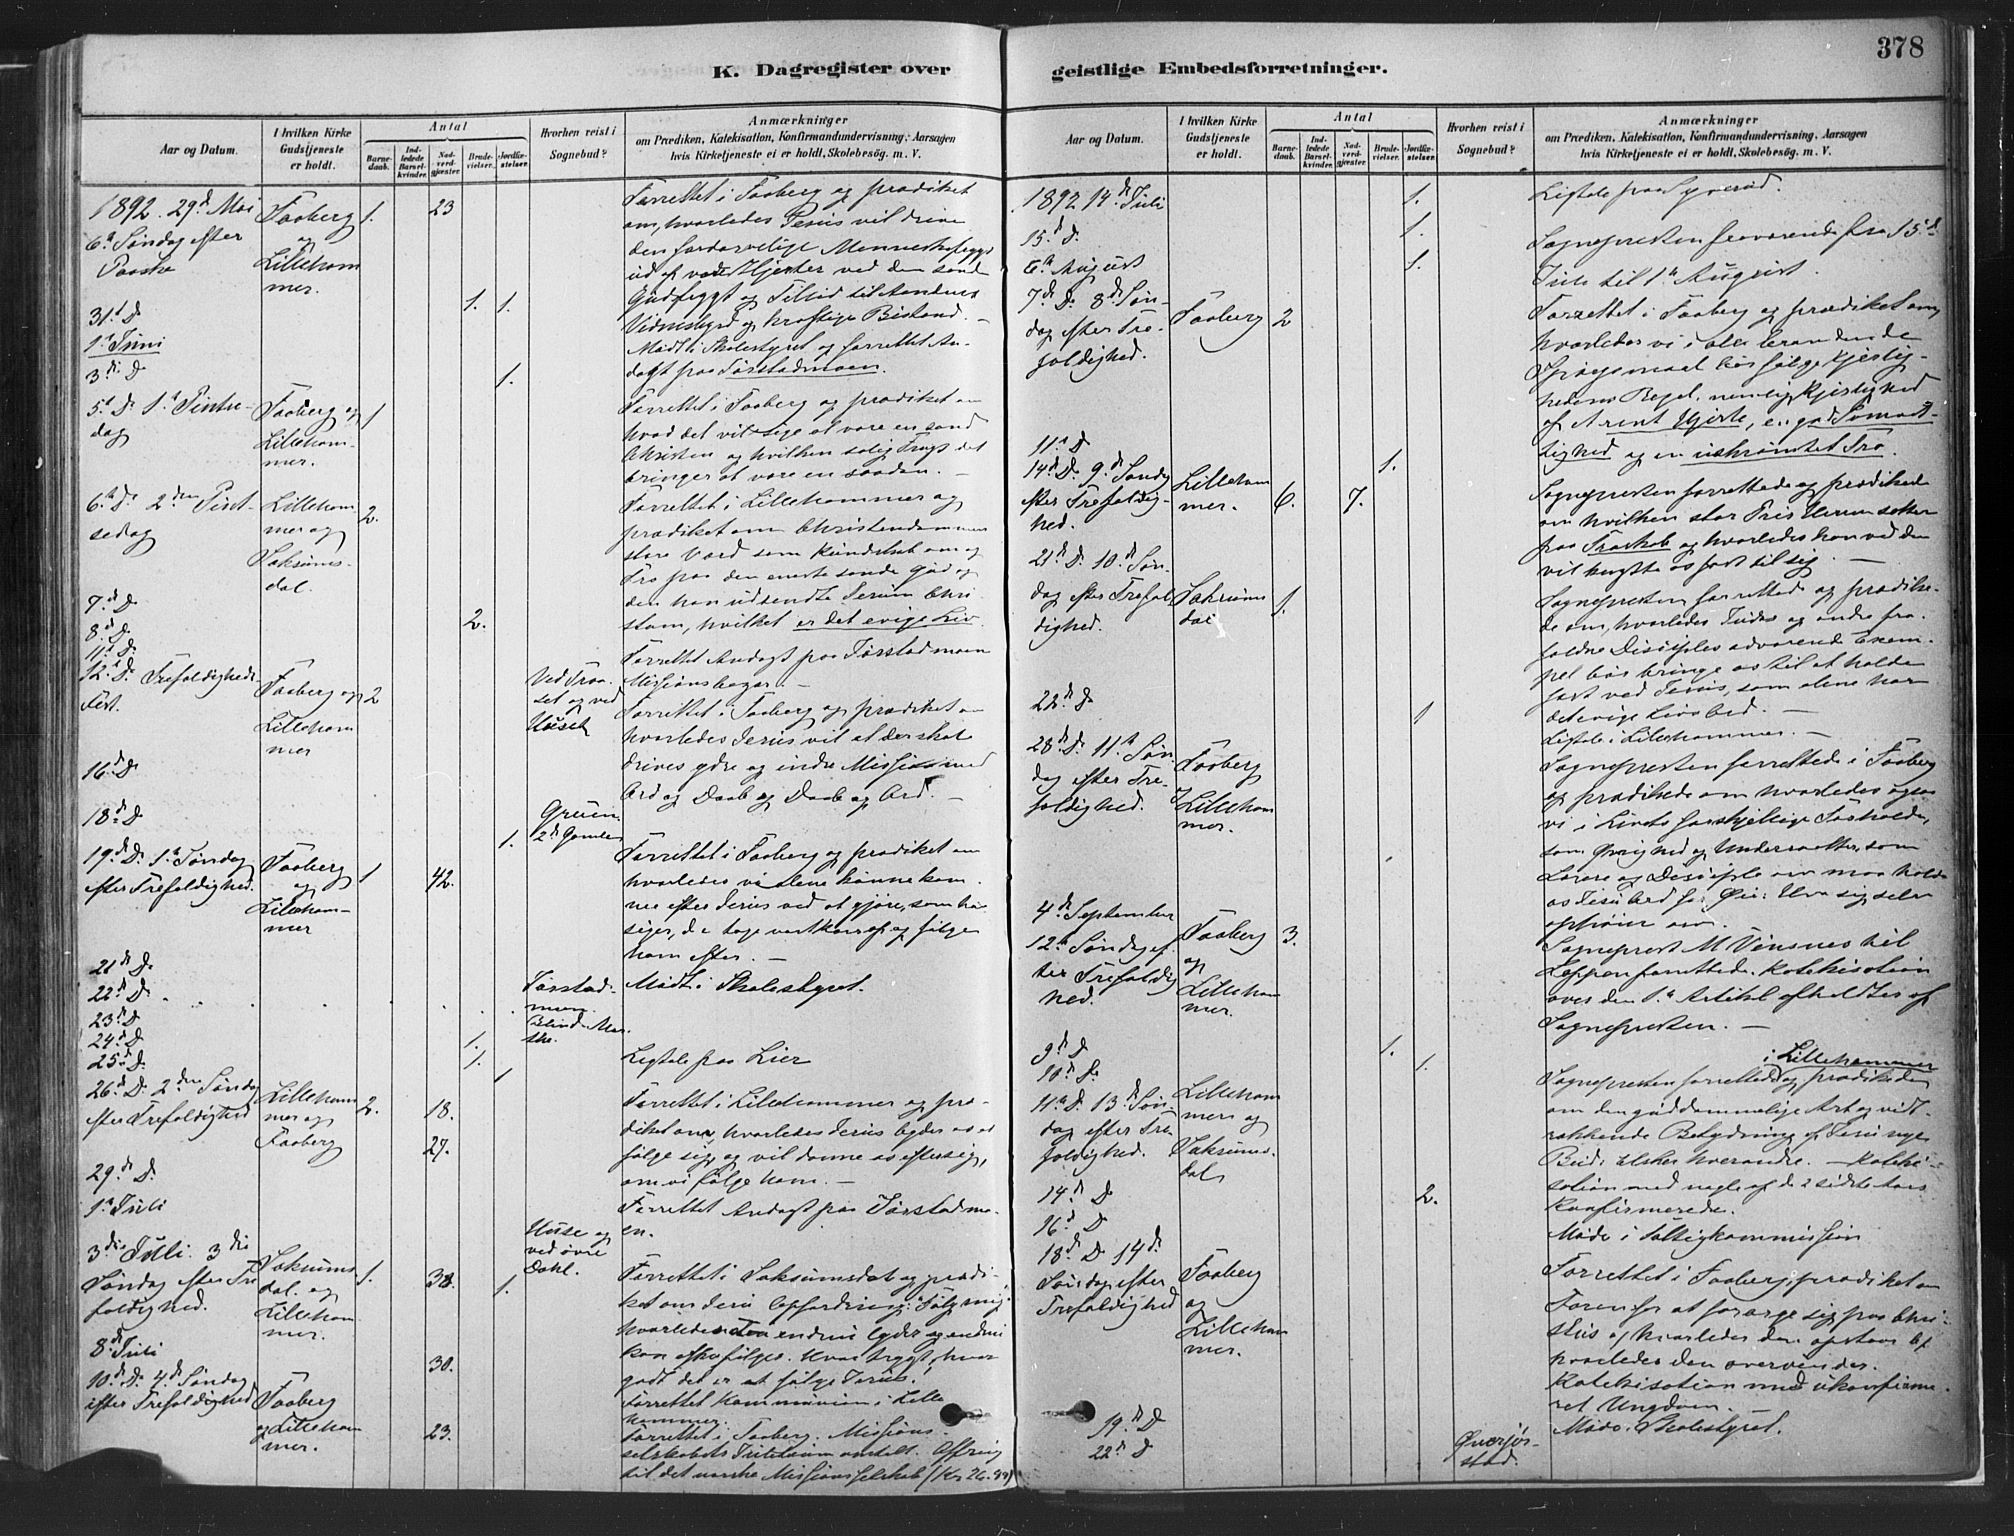 378
K. Dagregister over geistlige Embedsforretninger.
Aar og Datum.
I hvilken Kirke Gudstjeneste er holdt.
Antal
Barnedaab.
Indledede Barselkvinder.
Nadverdgjæster.
Brudevielser.
Jordfæstelser.
Hvorhen reist i Sognebud?
Anmærkninger
om Prædiken, Katekisation, Konfirmandundervisning, Aarsagen
hvis Kirketjeneste ei er holdt, Skolebesøg. m. V.
1892. 29d Mai Faaberg 1. 23 Forrettet i Faaberg og prædiket
6te Søndag efter og om, hvorledes Jesus vil drive
Paaske Lillehammer. den fordærvelige Menneskefrygt
ud af vore Hjerter ved den sande
31te D 1. 1. Gudfrygt og Tillid til Aandens
Vidnesbyrd og kraftige Bistand.
1ste Juni Mødt i Skolestyret og forrettet An-
3die D 1. dagt paa Jørstadmoen.
5te D. 1ste Pintse- Faaberg og 1 Forrettet i Faaberg og prædiket om
dag Lillehammer. hvad det vil sige at være en sand
Christen og hvilken salig Frugt det
bringer at være en saadan.
6te D. 2den Pint- Lillehammer og 2. Forrettet i Lillehammer og
sedag Saksumsdal. prædiket om Christendommens
store Værd som Kundskab om og
Tro paa den eneste sande Gud og
7de D den han udsendte Jesum Chri-
8de D. 2. stum, hvilket er det evige Liv.
11te D. Forrettet Andagt paa Jørstadmoen
12te D. Trefoldigheds- Faaberg og 2 Ved Missionsbazar.
fest. Lillehammer set og ved Forrettet i Faaberg og prædiket om
hvorledes Jesus vil at der skal
16de D drives ydre og indre Mission med
Ord og Daab og Daab og Ord.
18de D
1. 2de Gamle
19de D. 1ste Søndag Faaberg 1 42. Forrettet i Faaberg og prædiket om
efter Trefoldighed. og hvorledes vi alene kunne kom-
Lillehammer me efter Jesus ved at gjøre, som han
siger, d. e. tage vort Kors op og følge
ham efter.
21de D.
22de D. Jørstadmoen. Mødt i Skolestyret.
23de D
24de D 1.
25de D. 1. Ligtale paa Lier
26de D. 2den Søndag Lillehammer og 2. 18. 1 Forrettet i Lillehammer og præ-
efter Trefoldighed Faaberg 27. diket om, hvorledes Jesus byder os at
følge sig og vil danne os efter sig,
29de D. om vi følge ham.
1ste Juli Forrettet Andagt paa Jørstadmo-
Huse og en.
3die Juli. 3die Saksumsdal. og 1. 38. 1. ved øvre Dahl. Forrettet i Saksumsdal og prædi-
Søndag efter Tre- Lillehammer. ket om Jesu Opfordring: "Følg mig",
foldighed. hvorledes den endnu lyder og endnu
8de Juli 30. kan efterfølges. Hvor trygt, hvor
godt det er at følge Jesus!
10de D. 4de Søndag Faaberg Forrettet Kommunion i Lille-
efter Trefoldighed og Lillehammer. 23. hammer.
Forrettet i Faaberg. Missions-
selskabets Jubilæum omtalt. Offring
til det norske Missionsselskab
Aar og Datum.
I hvilken Kirke Gudstjeneste er holdt.
Antal
Barnedaab.
Indledede Barselkvinder.
Nadverdgjæster.
Brudevielser.
Jordfæstelser.
Hvorhen reist i Sognebud?
Anmærkninger
om Prædiken, Katekisation, Konfirmandundervisning, Aarsagen
hvis Kirketjeneste ei er holdt, Skolebesøg. m. V.
1892 14de Juli 1. Ligtale paa
15de D. 1. Sognepresten fraværende fra 15de
6te August 1. Juli til 1ste August.
7de D. 8de Søn- Faaberg 2 Forrettet i Faaberg og prædiket om,
dag efter Tre- hvorledes vi i alle brændende
foldighed. Spørgsmaal bør følge Kjærlig-
hedens Regel, nemlig Kjærlighed
af et rent Hjerte, en god Samvit-
11te D tighed og en uskrømtet Tro.
14de D. 9de Søndag Lillehammer. 6. 7. 1. Sognepresten forrettede og prædikede
efter Trefoldighed. om hvilken stor Pris Herren sætter
paa Troskab og hvorledes han ved den
vil knytte os fast til sig.
21de D. 10de Søn- Saksumsdal 1. Sognepresten forrettede og prædike-
dag efter Trefol- de om, hvorledes Judas og andre fra-
dighed. faldne Disciples advarende Exem-
pel bør bringe os til at holde
fast ved Jesus, som alene har
22de D 1 det evige Livs Ord.
Ligtale i Lillehammer.
28de D. 11te Søn- Faaberg Sognepresten forrettede i Faaberg
dag efter Tre- og Lillehammer. og prædikede om hvorledes ogsaa
foldighed. vi i Livets forskjellige Forholde,
som Øvrighed og Undersaatter, som
Lærere og Disciple om maa holde
os Jesu Ord for Øie: Hver sig selv
4de September Faaberg 3. ophøier o. s. v.
12te Søndag ef- og Sogneprest M Vinsnes til
ter Trefoldig- Lillehammer. forrettede. Katekisation
hed. over den 1ste Artikel afholdtes af
Sognepresten.
9de D 1.
10de D. 1. i Lillehammer
11te D. 13de Søn- Lillehammer og Sognepresten forrettede og prædikede
dag efter Tre- Saksumsdal om den guddommelige Art og vidt-
foldighed. rækkende Betydning af Jesu nye
Bud: Elsker hverandre. Kateki-
14de D 2. sation med nogle af de 2 sidste Aars
16de D Konfirmerede.
Møde i Fattigkommission
18de D. 14de Faaberg Forrettet i Faaberg, prædiket om
Søndag efter og Faren for at forarge sig paa Chri-
Trefoldighed Lillehammer. stus og hvorledes den opstaar og
hvorledes den overvindes.
Katekisation med ukonfirme-
ret Ungdom.
19de D Møde i Skolestyret.
22de D